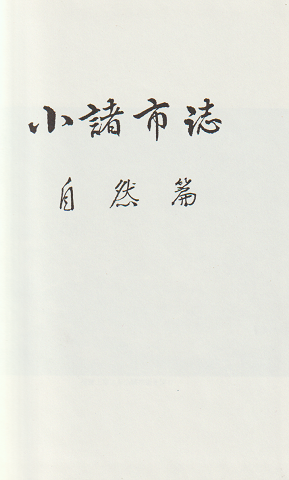 小諸市誌
自然篇